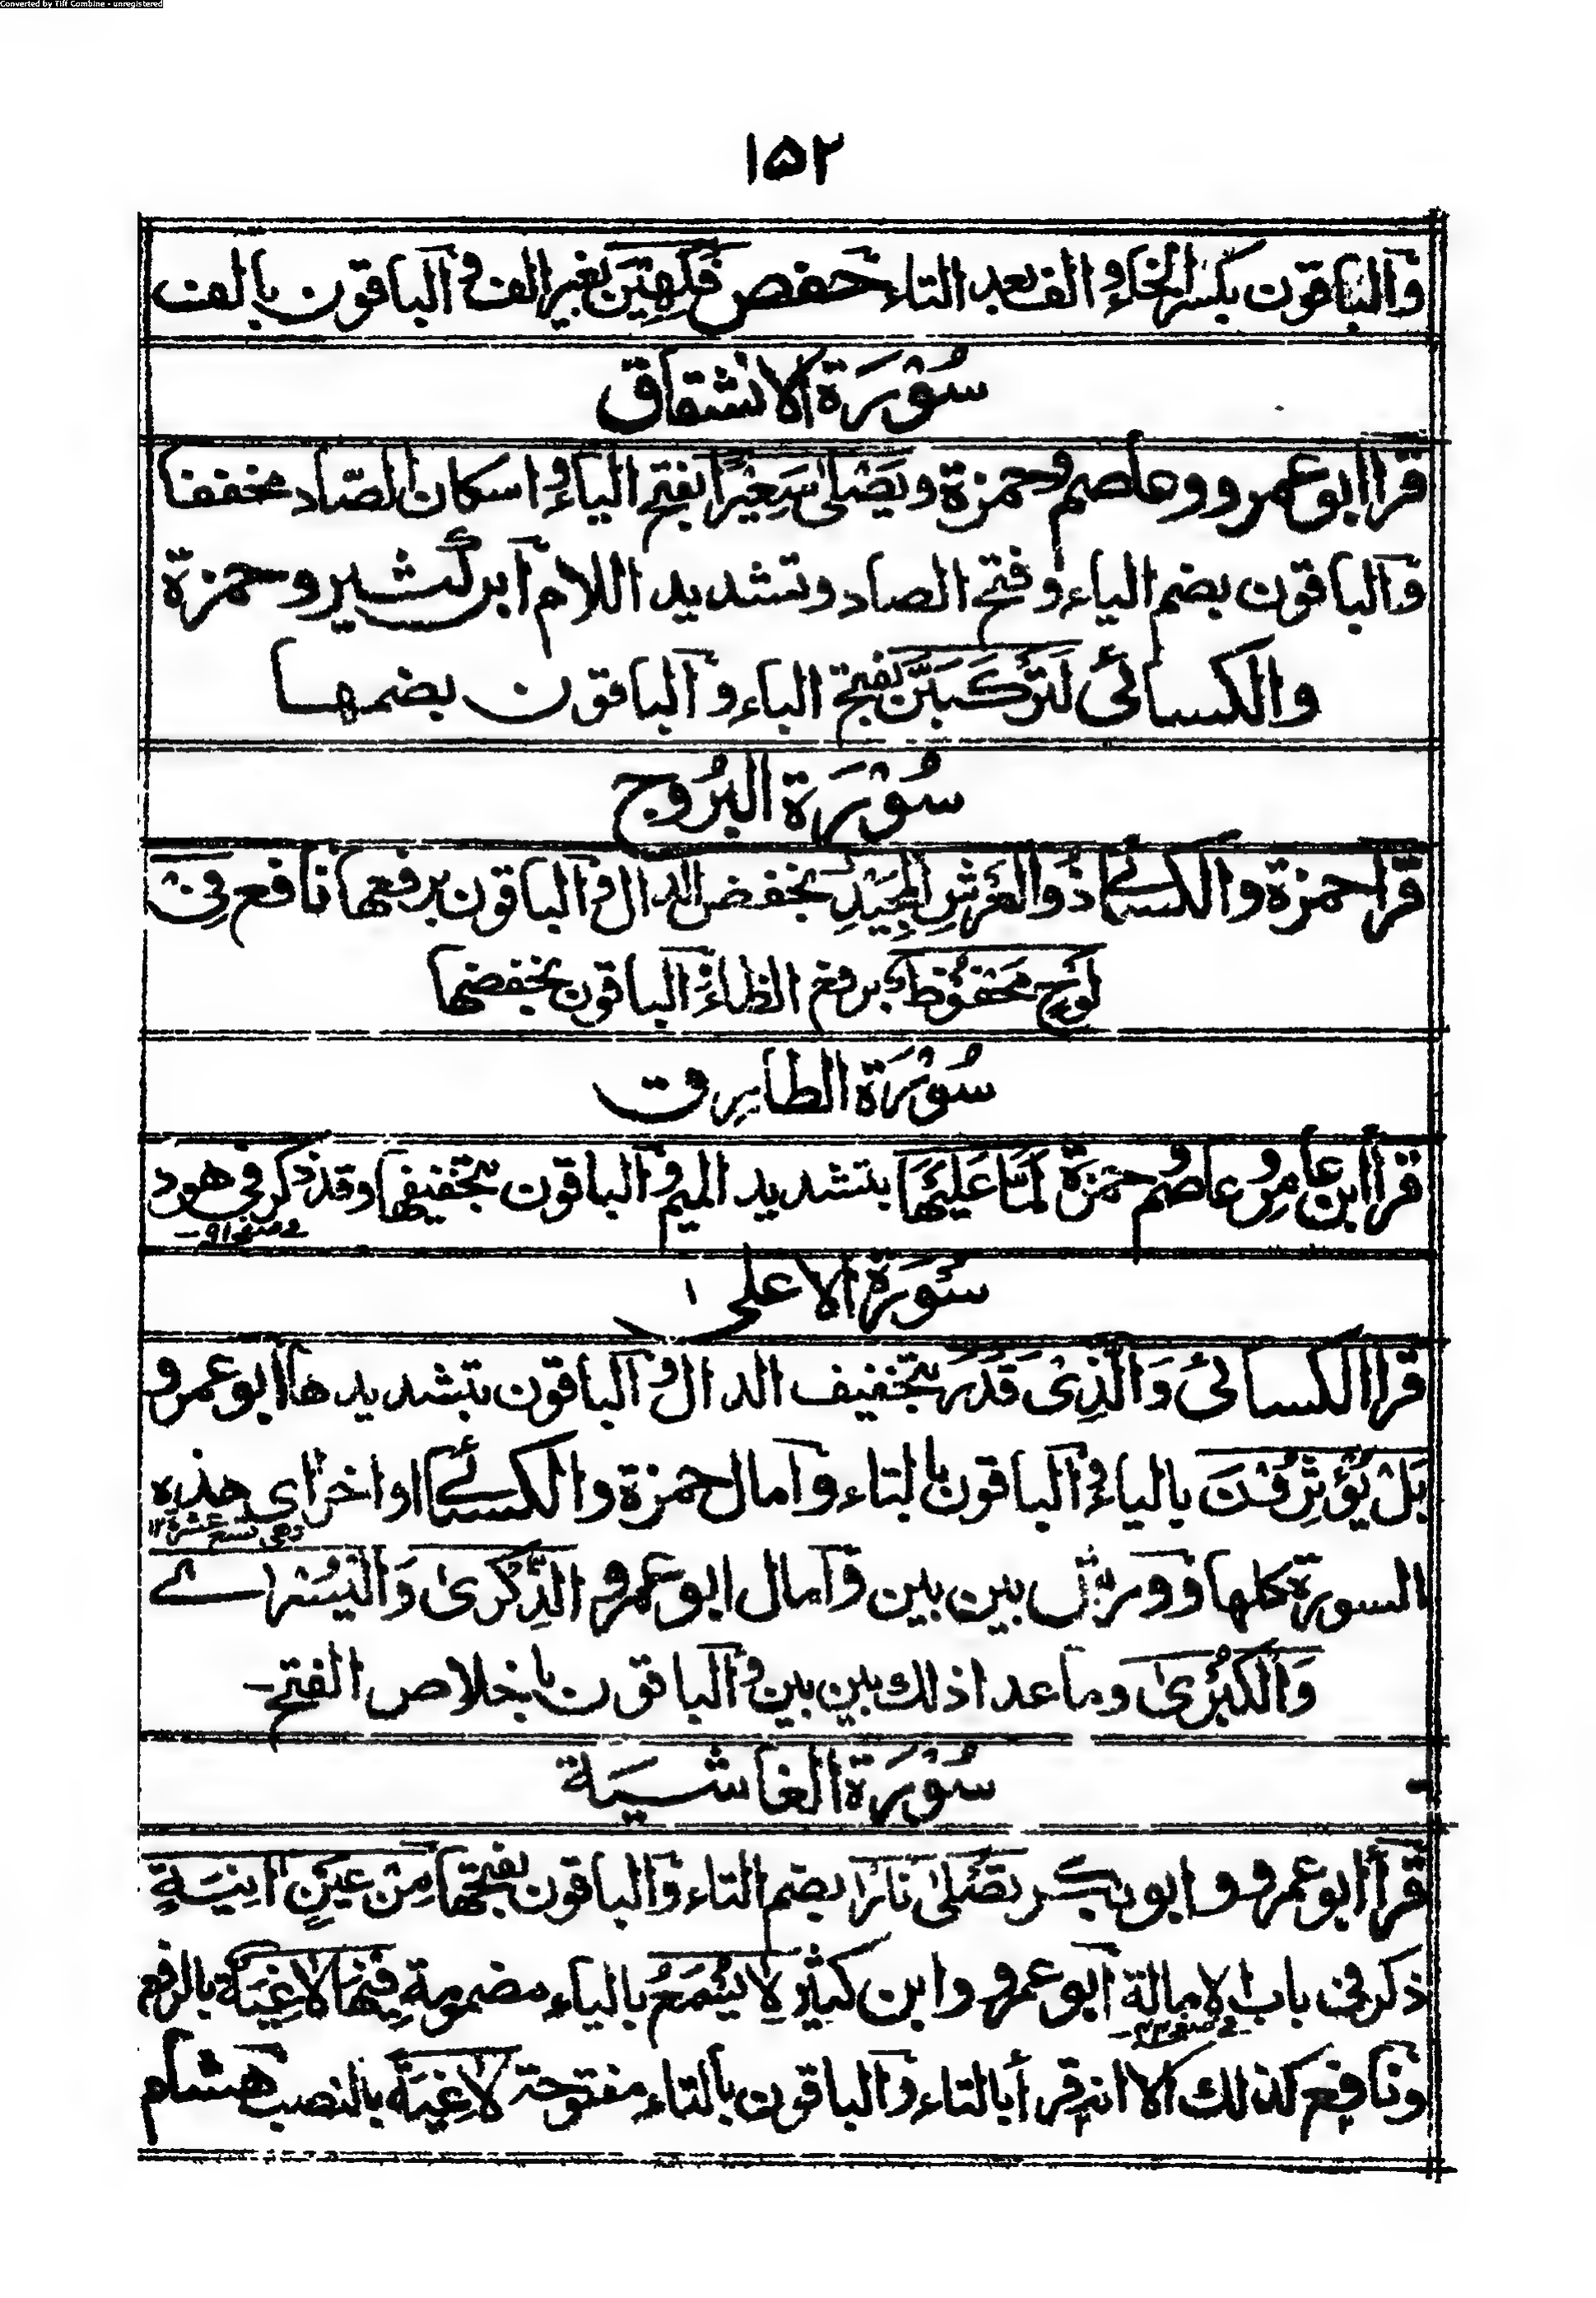 Converted by Tiff Combine - unregistered
١٥٢
والباقون بكسر الخاء والف بعد التاء حفص فَكِهِيْنَ بغير الف والباقون بالف
سُوْرَة الانشقاق
قرا ابو عمرو وعاصم وحمزة ويَصْلٰى سَعِيْرًا بفتح الياء واسكان الصّاد مخففا
والباقون بضم الياء وفتح الصاد وتشديد اللام ابن كثير وحمزة
والكسائى لَتَرْكَبَنَّ بفتح الباء والباقون بضمها
سُوْرَة البُرُوج
قرا حمزة والكسائے ذُو الْعَرْشِ الْمَجِيْدِ بخفض الدال والباقون برفعها نافع فِىْ
لَوْحٍ مَحْفُوْظٌ برفع الظاء والباقون بخفضها
سُوْرَة الطارق
قرأ ابن عامر وعاصم وحمزة لَمَّا عَلَيْهَا بتشديد الميم والباقون بتخفيفها وقد ذكر في هود
ے صفحه ٩١-
سُوْرَة الاعلى
قرا الكسائى وَالَّذِىْ قَدَرَ بتخفيف الدال والباقون بتشديدها ابو عمرو
بَلْ يُؤْثِرُوْنَ بالياء والباقون بالتاء وامال حمزة والكسائے اواخر اى هذه
وهى تسع عشرة
السورة كلها وورش بين بين وامال ابو عمرو الذِّكْرٰى وَالْيُسْرٰے
وَالْكُبْرٰى وما عدا ذلك بين بين والباقون باخلاص الفتح-
سُوْرَة الغاشيَة
قرأ ابو عمرو وابو بكر تُصْلٰى نَارًا بضم التاء والباقون بفتحها مِنْ عَيْنٍ اٰنِيَةٍ
ذكر فى باب الامالة ابو عمرو وابن كثير لَا يُسْمَعُ بالياء مضمومة فِيْهَا لَاغِيَةٌ بالرفع
ے صفحه ٢٣-
ونافع كذلك الا انه قرأ بالتاء والباقون بالتاء مفتوحة لَاغِيَةً بالنصب هشام